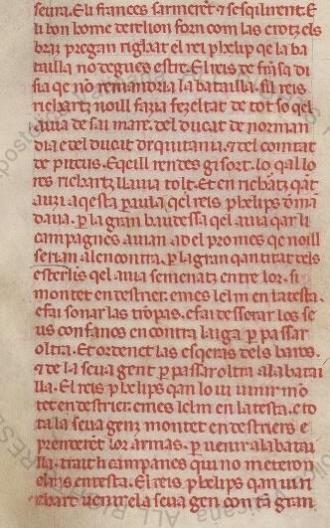 seura. E li frances sarmeret ⁊ se sqilirent. E
li bon home de relion foru com las crotz els
braz pregan rigḣat el rei phelip qe la ba
tailla no degues estre. El reis de frāsa di
sia qe nō remandria la batailla. sil reis
richartz noill fazia fezeltat de tot so qel
auia de sai mare. del ducat de norman
dia e del ducat dequitania. ⁊ del comtat
de piteus. E qeill rendes gisort. lo qal lo
res richartz llauia tolt. Et en richartz qāt
auzi aqesta paula qel reis phelips demā
daua. p la gran baudessa qel auia qar li
campagnes auian ad el promes qe noill
serian alencontra. p la gran qantitat dels
esterlis qel auia semenatz entre lor. si
montet en destrier. e mes lelm en la testa.
e fai sonar las trōpas. e fai desserar los se
us confanos encontra laiga p passar
oltra. Et ordenet las esqeras dels baros.
⁊ de la seua gent p passar oltra a la batai
lla. El reis phelips qan lo ui uenir mō
tet en destrier. e mes lelm en la testa. e to
ta la seua genz montet en destriers e
prenderēt lor armas. p uenir a la batai
lla. trait li campanes qui no meteron
elms en testa. El reis phelips qan ui ri
chart uenir e la seua gen con tā gran